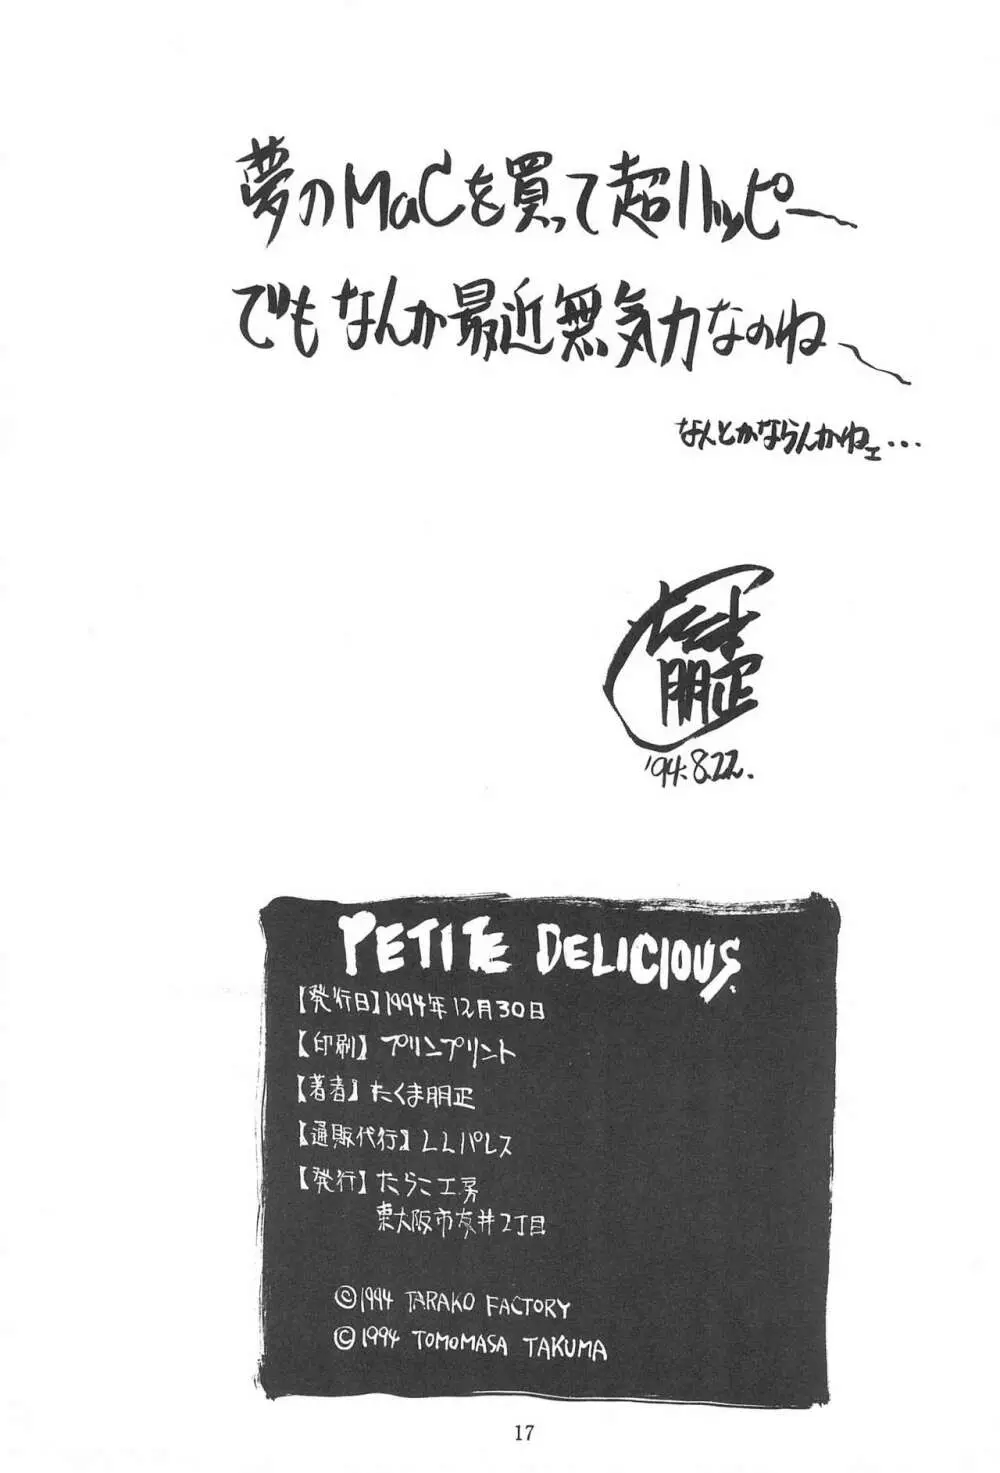 夢のMaCを買って超ハッピー〜
でもなんか最近無気力なのね〜
なんとかならんかねェ・・・
たくま
朋正
'94.8.22.
PETITE DELICIOUS.
【発行日】1994年12月30日
【印刷】プリンプリント
【著者】たくま朋正
【通販代行】LLパレス
【発行】たらこ工房
東大阪市友井2丁目
©1994 TARAKO FACTORY
©1994 TOMOMASA TAKUMA
17